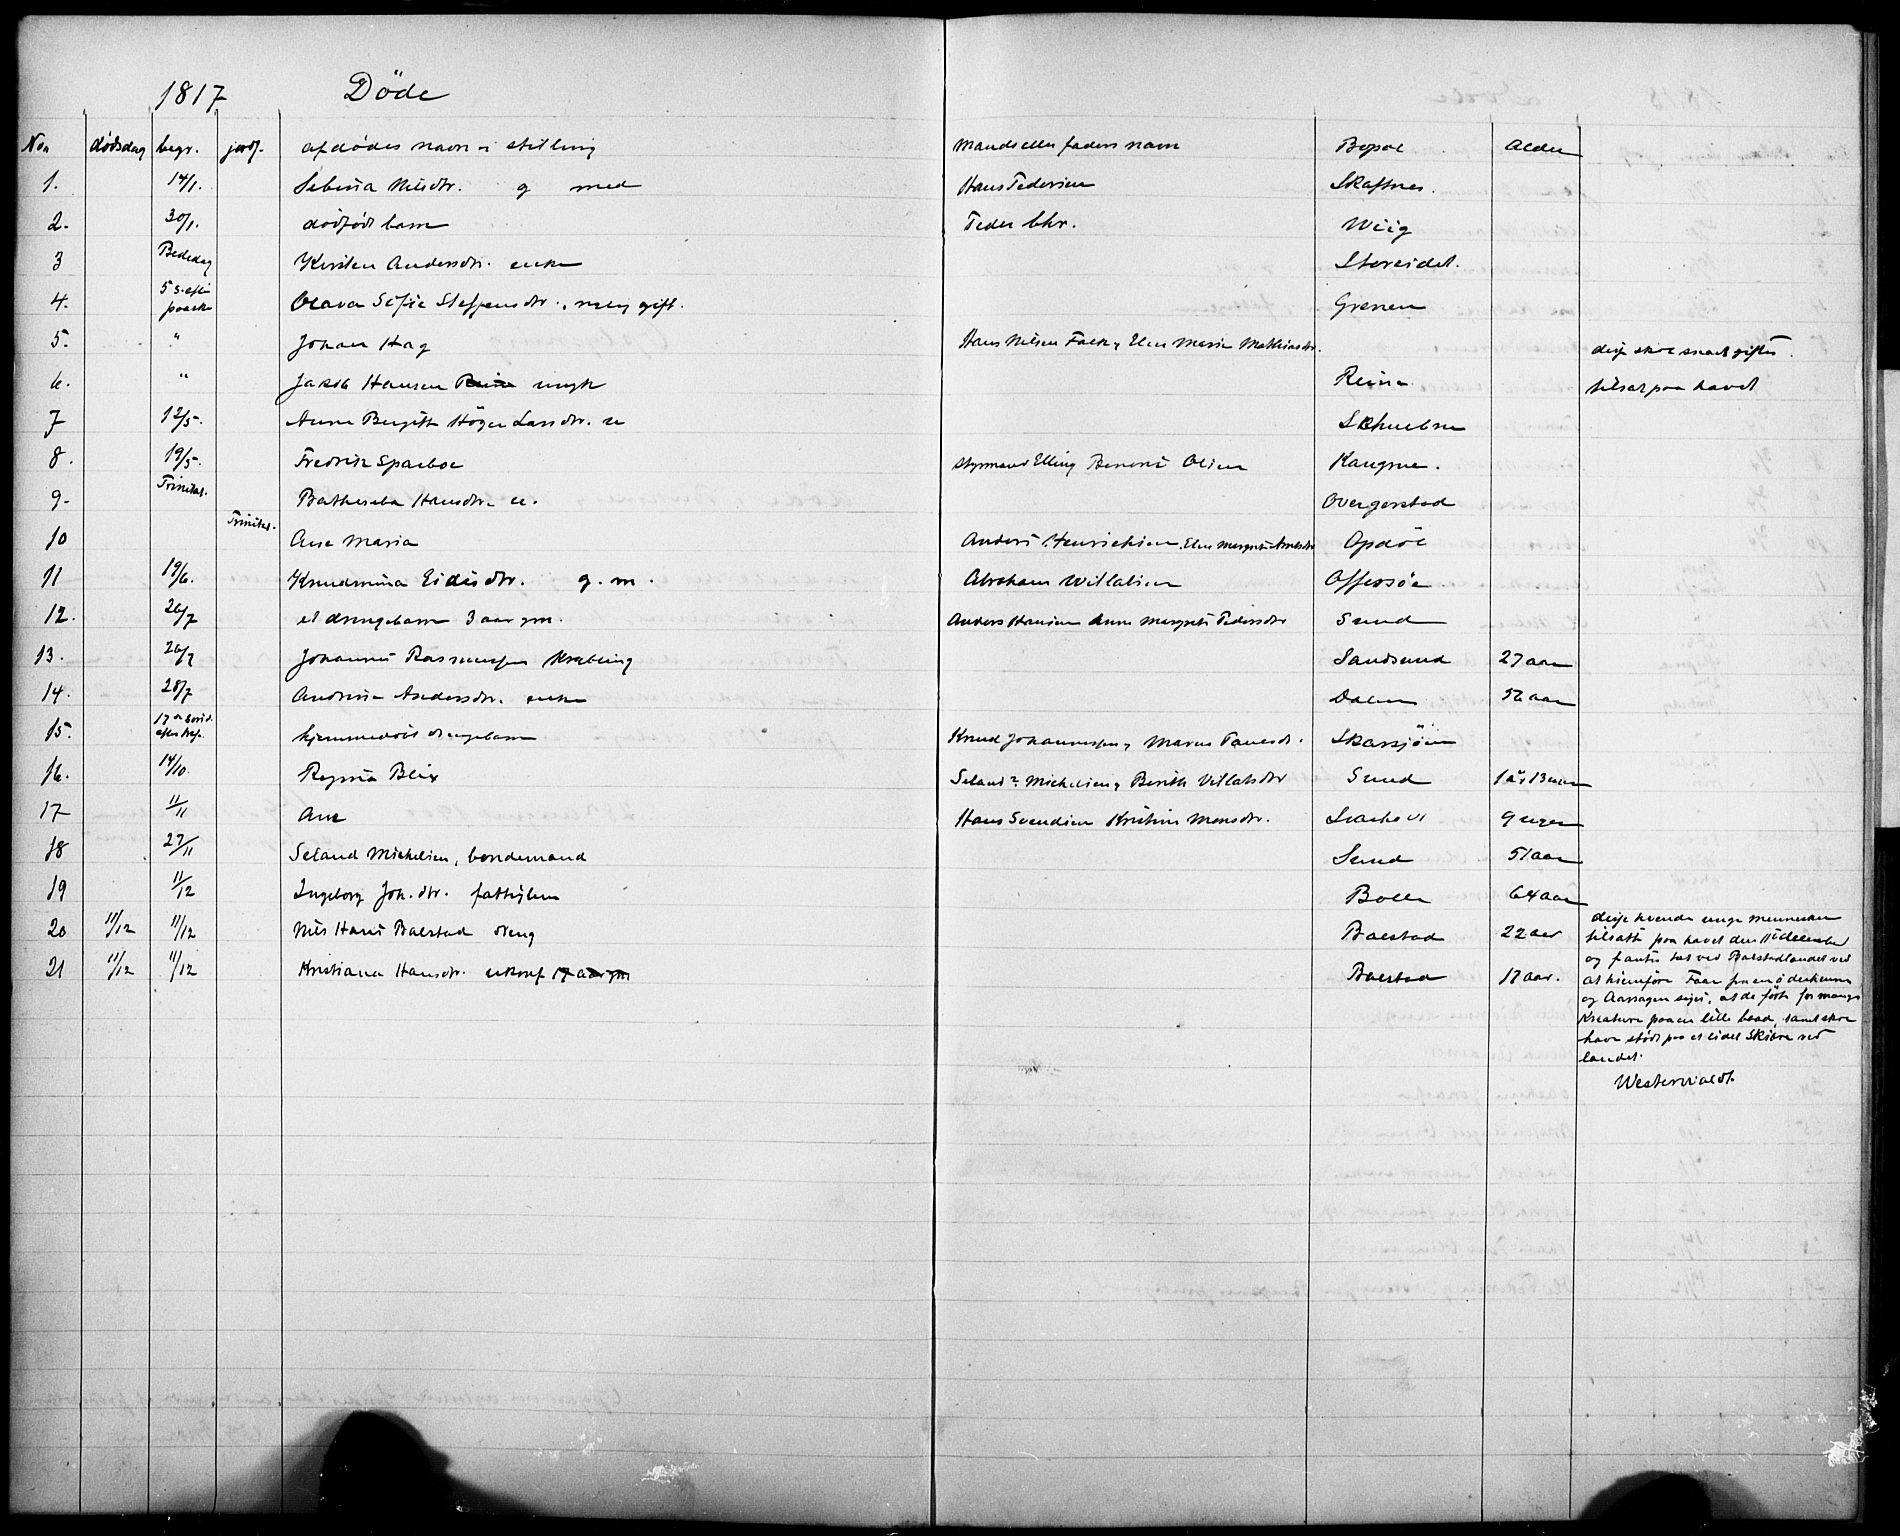 1817 Döde
No dødsdag begr. jordf. afdødes navn & stilling Mands eller faders navn Bopæl Alder
1. 14/1. Sebina Nilsdtr. g med Hans Pedersen Skaftnes.
2. 30/1. dødfødt barn Peder Chr. Wiig
3 Bededag Kirsten Andersdtr. enke Storeidet.
4. 5 s. efter paaske Olava Sofie Steffensdtr., nylig gift. Grenen
5. " Johan Hag Hans Nilsen Falch & Elen Maria Mathiasdtr. disse skal snart giftes.
6. " Jakob Hansen ungk Reine tilsat paa havet
7 12/5. Anne Birgitte Höyer Larsdtr.
8. 19/5. Fredrik Sparboe styrmand Elling Benoni Olsen
9. Trinitat. Bathseba Hansdtr. Overgerstad
10 Trinitat. Ane Maria Anders Henriksen, Elen Margrete Opdöl
11 19/6. Knudmina Eidisdtr. g. m. Abraham Willatsen Offersøe
12. 26/7 et drengebarn 3 aar gm. Anders Hansen Anne Margrete Pedersdtr Sund
13. 26/7 Johannes Rasmussen Sandsund 27 aar
14. 28/7 Andrina Andersdtr. enke Dalen 56 aar
15. 17de sønd. efter tref. hjemmedöbt drengebarn Knud Johannessen & Maren Skarsjöen
16. 14/10. Regina Blix Seland? Michelsen & Berith Villatsdtr Sund 1 år 13 uger
17 11/11 Ane Hans Svendsen Kristine Monsdtr. 9 uger
18 27/11 Seland Michelsen, bondemand Sund 51 aar
19 11/12 Ingeborg Joh. dtr. fattiglem Bolle 64 aar
20 11/12 11/12 Nils Hans Balstad dreng Balstad 22 aar
21 11/12 11/12 Kristiana Hansdtr. ukonf 17 aar gm Balstad 17 aar.
disse tvende unge mennesker
tilsatte paa havet den 11 december
og fantes tæt ved Balstadlandet ved
at hiemføre Faar fra en ø
og Aarsagen siges, at de førte for mange
Kreature paa en lille baad, samt skal
have stødt paa et lidet Skiær ved
landet.
Westerwaldt.